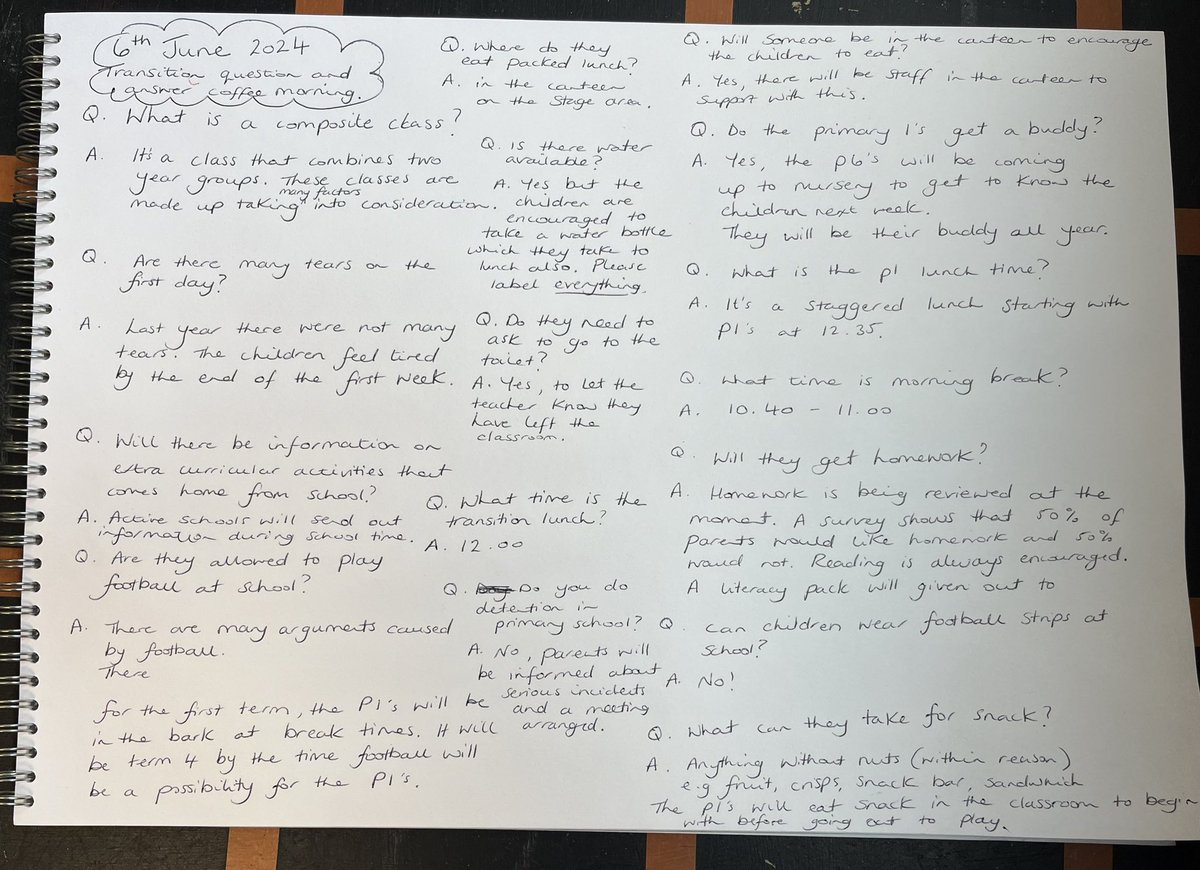 6th June 2024
Transition question and
answer coffee morning.
Q. What is a composite class?
A. It's a class that combines two
year groups. These classes are
many factors
made up taking into consideration.
Q. Are there many tears on the
first day?
A. Last year there were not many
tears. The children feel tired
by the end of the first week.
Q. Will there be information on
extra curricular activities that
comes home from school?
A. Active schools will send out
information during school time.
Q. Are they allowed to play
football at school?
A. There are many arguments caused
by football.
There
for the first term, the P1's will be
in the bark at break times. It will
be term 4 by the time football will
be a possibility for the P1's.
Q. Where do they
eat packed lunch?
A. in the canteen
on the stage area.
Q. Is there water
available?
A. Yes but the
children are
encouraged to
take a water bottle
which they take to
lunch also. Please
label everything.
Q. Do they need to
ask to go to the
toilet?
A. Yes, to let the
teacher know they
have left the
classroom.
Q. What time is the
transition lunch?
A. 12.00
Q. Do you do
detention in
primary school?
A. No, parents will
be informed about
serious incidents
and a meeting
arranged.
Q. Will someone be in the canteen to encourage
the children to eat?
A. Yes, there will be staff in the canteen to
support with this.
Q. Do the primary 1's get a buddy?
A. Yes, the p6's will be coming
up to nursery to get to know the
children next week.
They will be their buddy all year.
Q. What is the p1 lunch time?
A. It's a staggered lunch starting with
P1's at 12.35.
Q. What time is morning break?
A. 10.40 - 11.00
Q. Will they get homework?
A. Homework is being reviewed at the
moment. A survey shows that 50% of
parents would like homework and 50%
would not. Reading is always encouraged.
A literacy pack will given out to
Q. Can children wear football strips at
school?
A. No!
Q. What can they take for snack?
A. Anything without nuts (within reason)
e.g fruit, crisps, snack bar, sandwhich
The P1's will eat snack in the classroom to begin
with before going out to play.